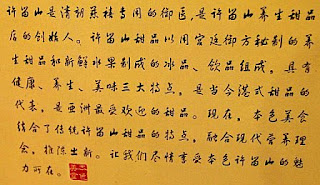 许留山是清初慈禧专用的御医,是许留山养生甜品
店的创始人。许留山甜品以用宫廷御方秘制的养
生甜品和新鲜水果制成的冰品、饮品组成,具有
健康、养生、美味三大特点,是当今港式甜品的
代表,是亚洲最受欢迎的甜品。现在,本色美食
结合了传统许留山甜品的特点,融合现代营养理
念,推陈出新。让我们尽情享受本色许留山的魅
力所在。